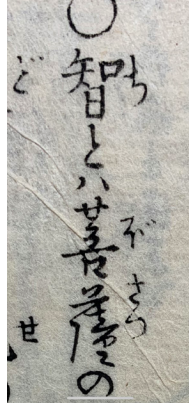 ○智とハ菩薩の
ち ぼさつ
ど せ